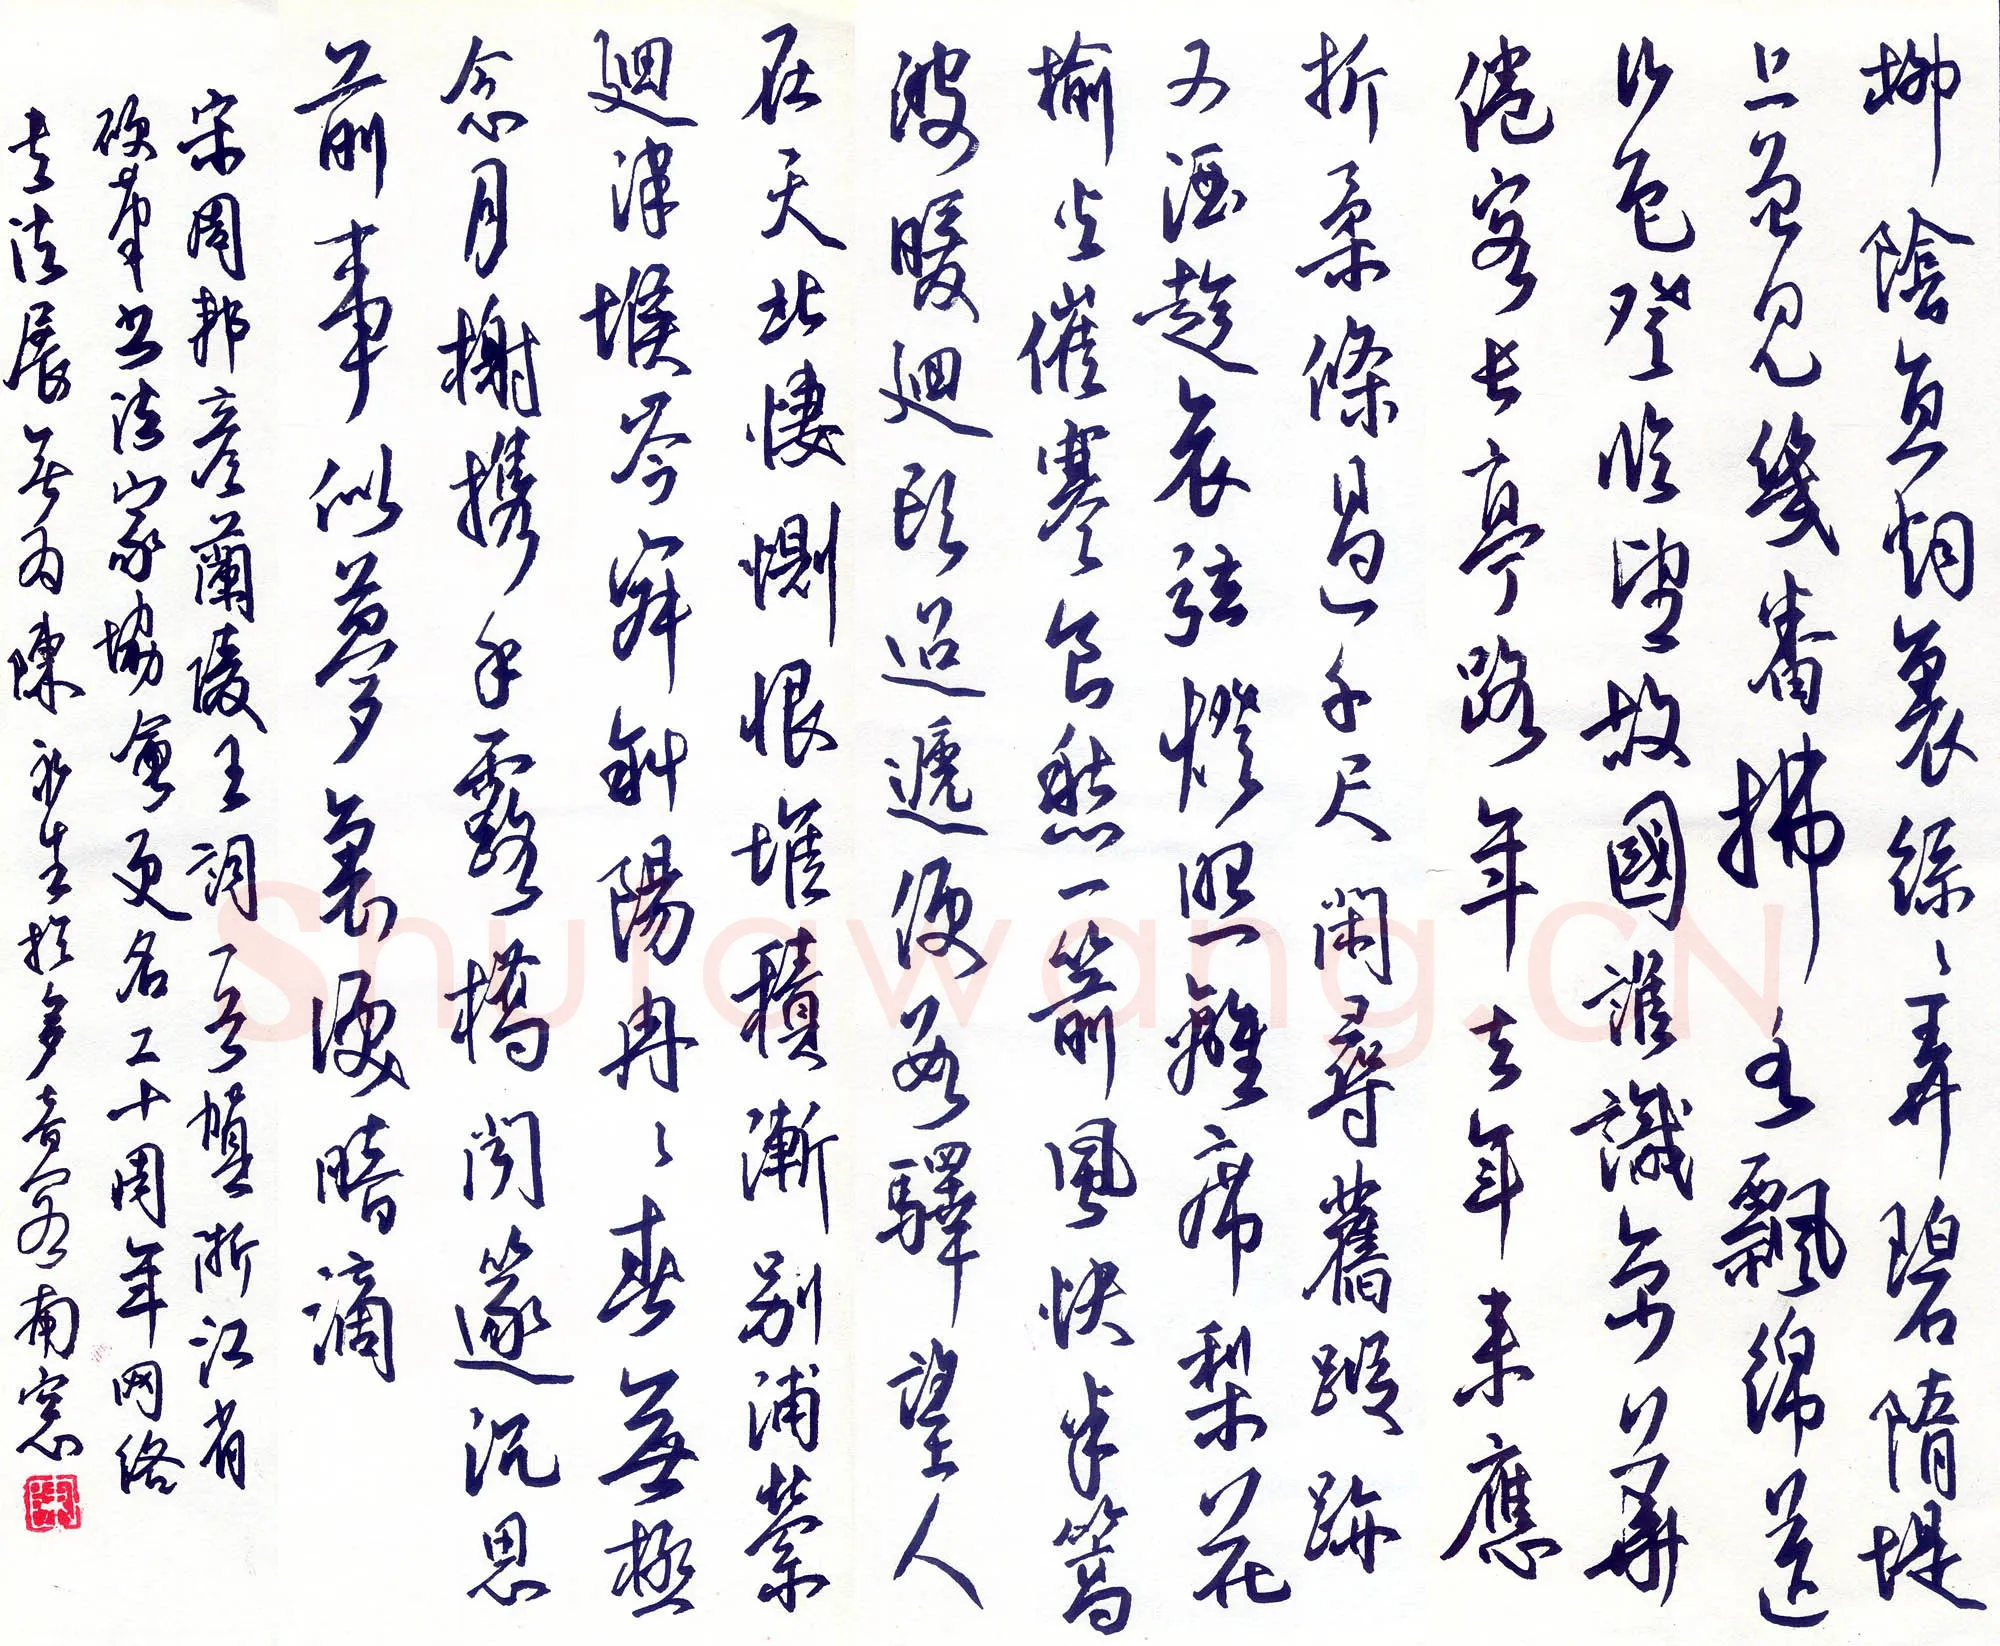 柳陰直烟裏絲〻弄碧隋堤
上曾見幾番拂水飄綿送
行色登臨望故國誰識京華
倦客長亭路年去年来應
折柔條過千尺閑尋舊蹤跡
又酒趁哀弦燈照離席梨花
榆火催寒食愁一箭風快半篙
波暖迴頭迢遞便數驛望人
在天北悽惻恨堆積漸別浦縈
迴津堠岑寂斜陽冉〻春無極
念月榭攜手露橋聞篴沉思
前事似夢裏淚暗滴
宋周邦彥蘭陵王詞一首賀浙江省
硬筆書法家協會更名二十周年网络
書法展 陳永生於多 南窓
Shufawang.CN